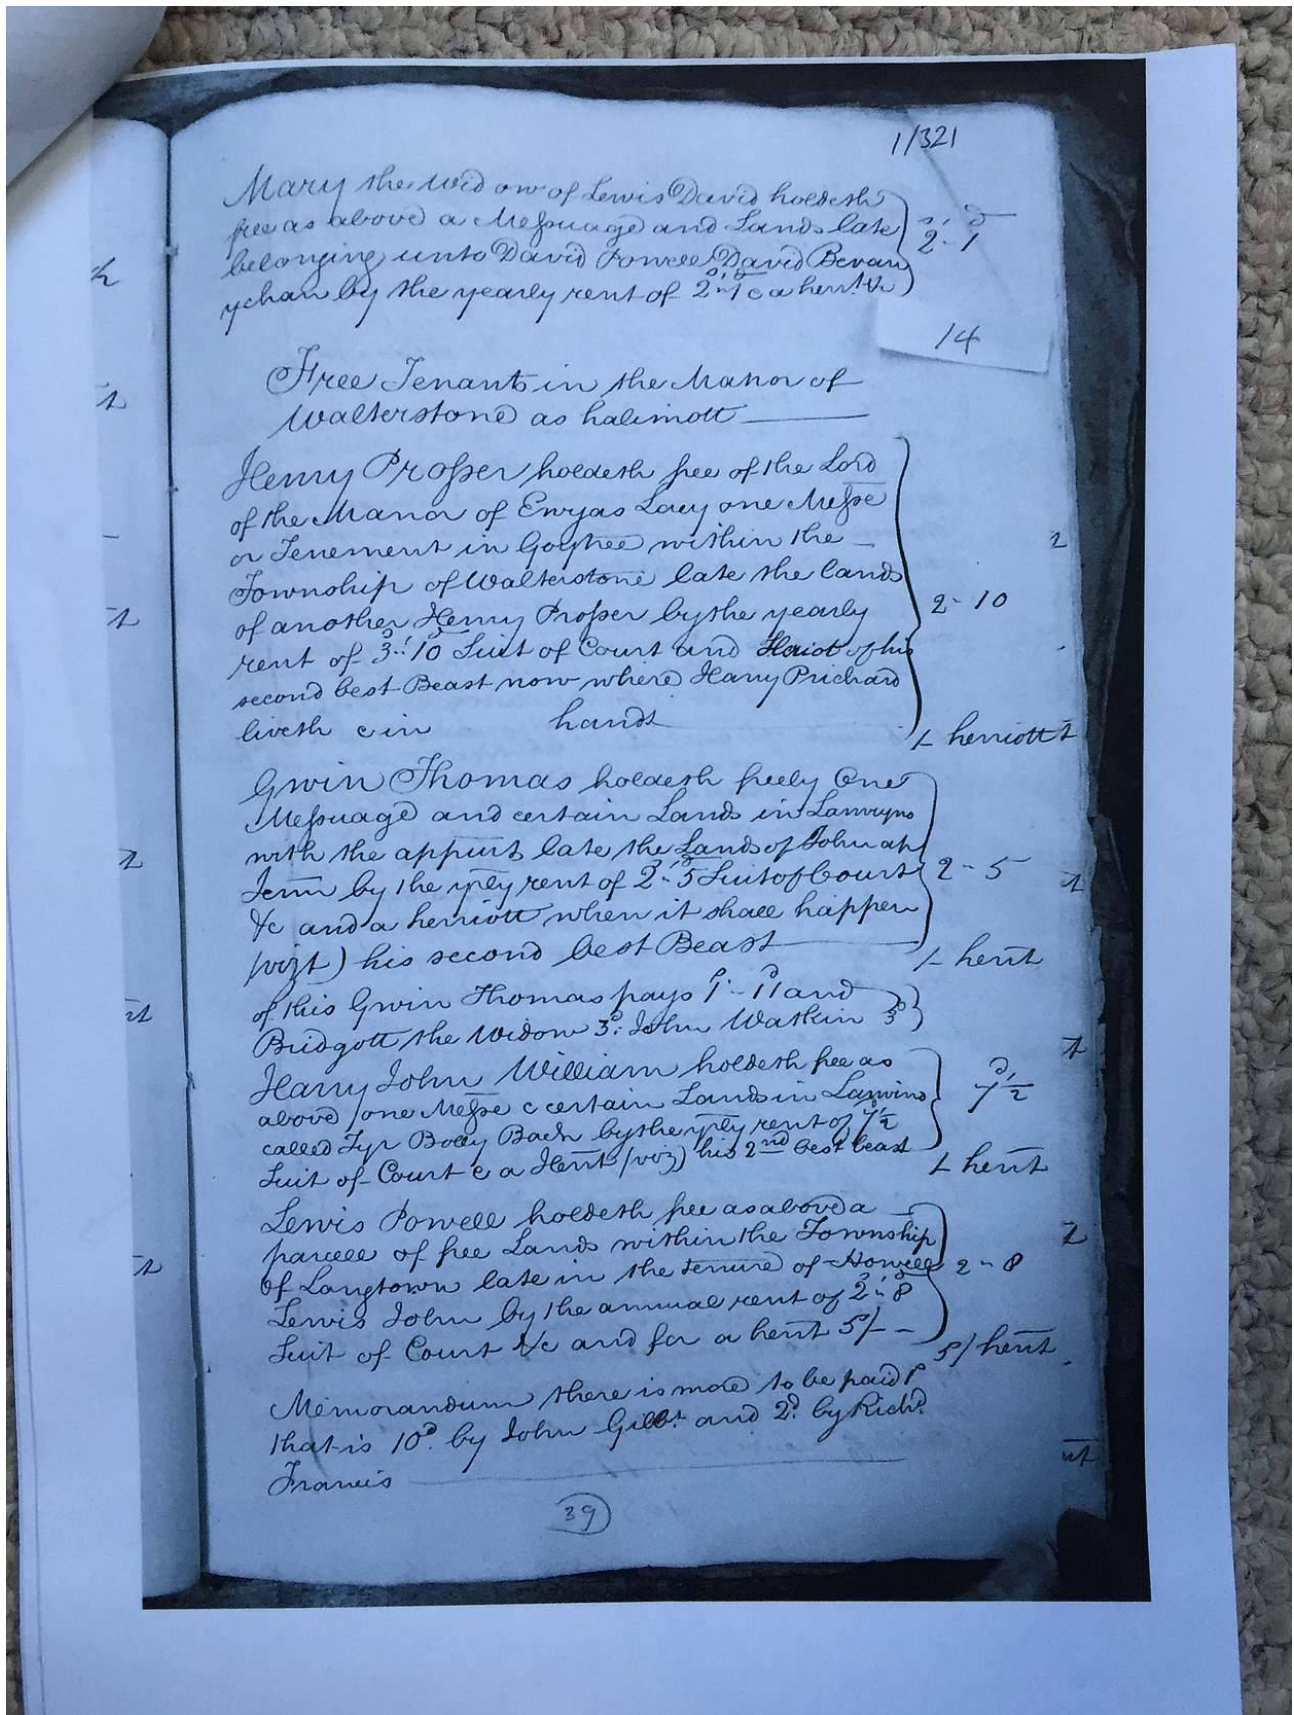 1/321
Mary the Widow of Lewis David holdeth
free as above a Messuage and Lands late
belonging unto David Powell David Bevan
ychan by the yearly rent of 2s-1d & a herrt &c
2s-1d
14
Free Tenants in the Manor of
Walterstone as halimott
Henry Prosser holdeth free of the Lord
of the Manor of Ewyas Lacy one Messe
or Tenement in Goytree within the
Township of Walterstone late the Lands
of another Henry Prosser by the yearly
rent of 3s:10d Suit of Court and Heriot of his
second best Beast now where Harry Prichard
liveth & in hands
2-10
1 herriott
Gwin Thomas holdeth freely One
Messuage and certain Lands in Lanwyno
with the appurts late the Lands of John ap
Jenn by the yrly rent of 2s-5d Suit of Court
&c and a herriott when it shall happen
(vizt) his second best Beast
2-5
1 herit
of this Gwin Thomas pays 1s-11d and
Bridgott the Widow 3d: John Watkin 3d
Harry John William holdeth free as
above one Messe & certain Lands in Lanwino
called Tyr Bolly Bach by the yrly rent of 7d½
Suit of Court & a Herit (viz) his 2nd best beast
7d½
1 herit
Lewis Powell holdeth free as above a
parcell of free Lands within the Township
Of Langtown late in the tenure of Howell
Lewis John by the annual rent of 2s:8d
Suit of Court &c and for a herit 5/-
2-8
5/ herit
Memorandum there is more to be paid 1s
that is 10d. by John Gilbt. and 2d. by Richd.
Francis
39